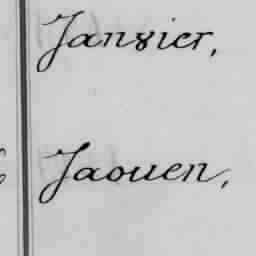 Janvier,
Jaouen,